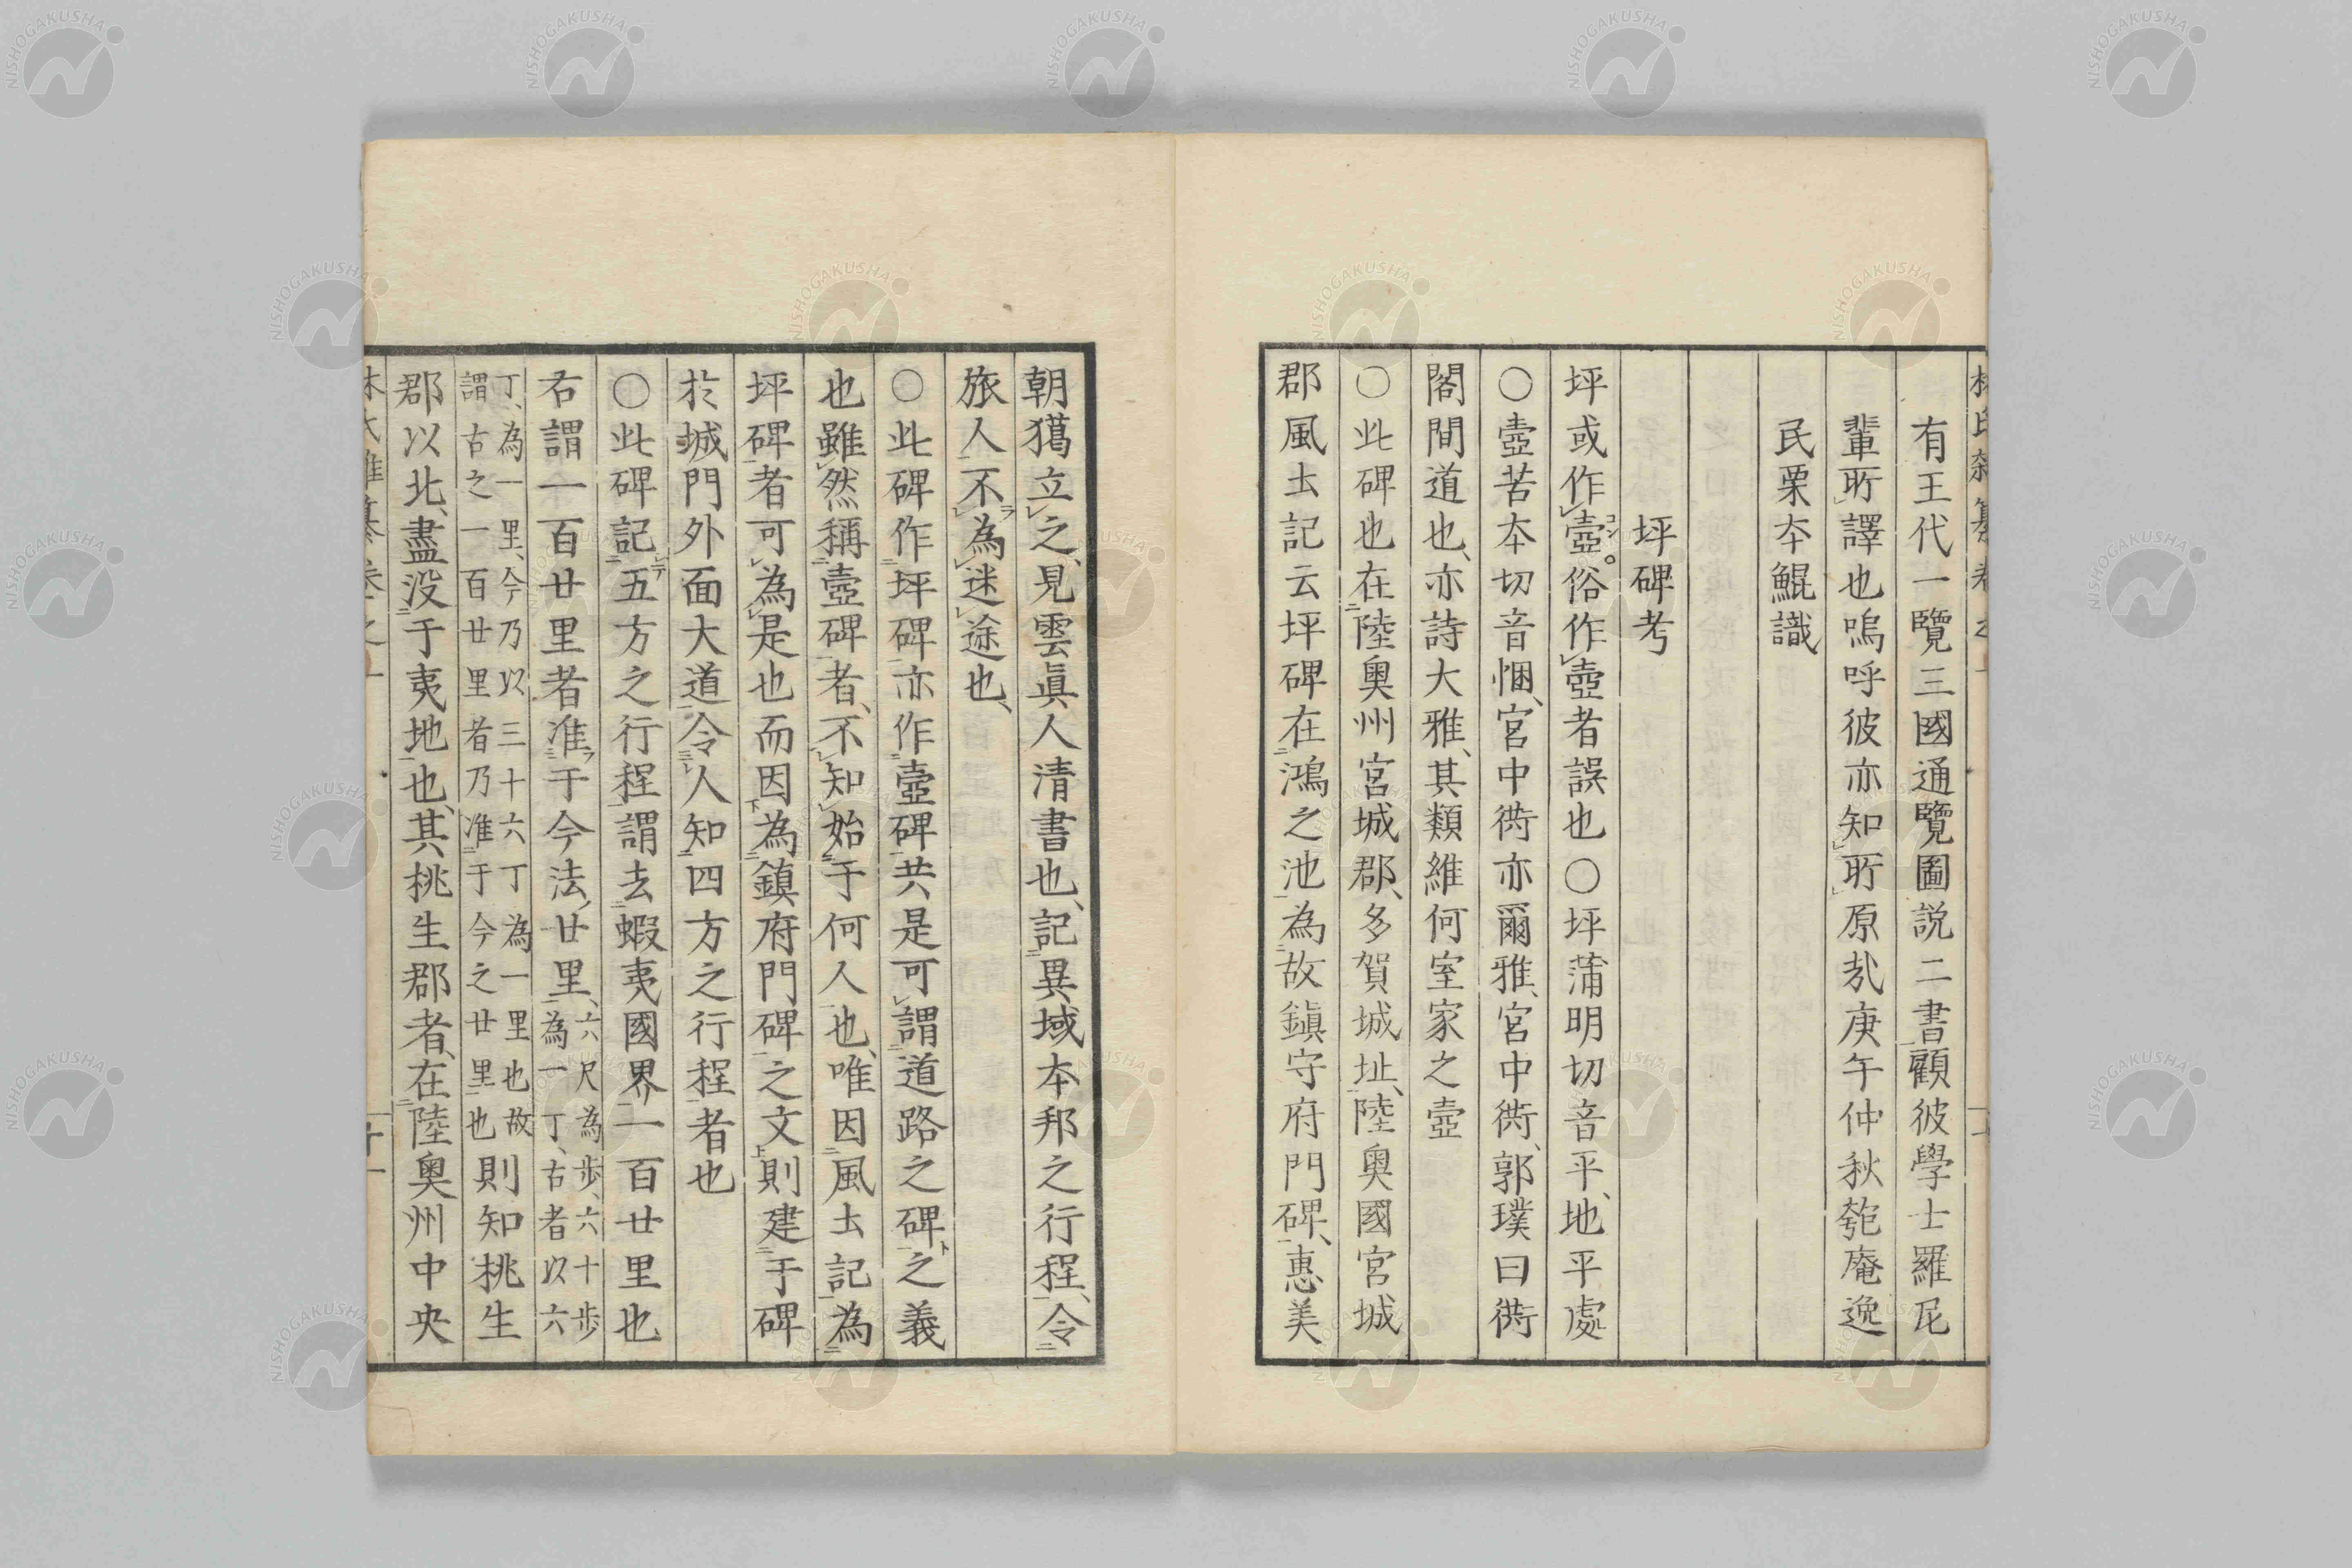 有王代一覽三國通覽圖説二書顧彼學士羅尼
輩所譯也嗚呼彼亦知所原哉庚午仲秋匏庵逸
民栗本鯤識
坪碑考
坪或作壼。俗作壺者誤也〇坪蒲明切音平、地平處
〇壼苦本切音悃、宮中衖亦爾雅、宮中衖、郭璞曰衖
閤間道也、亦詩大雅、其類維何室家之壼
〇此碑也在陸奧州宮城郡、多賀城址、陸奧國宮城
郡風土記云坪碑在鴻之池為故鎮守府門碑、惠美
朝獦立之、見雲眞人清書也、記異域本邦之行程、令
旅人不為迷途也、
〇此碑作坪碑亦作壼碑共是可謂道路之碑之義
也雖然稱壼碑者、不知始于何人也、唯因風土記為
坪碑者可為是也而因為鎮府門碑之文則建于碑
於城門外面大道令人知四方之行程者也
〇此碑記五方之行程謂去蝦夷國界一百廿里也
右謂一百廿里者准于今法廿里、六尺為歩、六十歩
為一丁、古者以六
丁、為一里、今乃以三十六丁為一里也故
謂古之一百廿里者乃准于今之廿里也則知桃生
郡以北、盡没于夷地也、其桃生郡者、在陸奧州中央
NISHOGAKUSHA